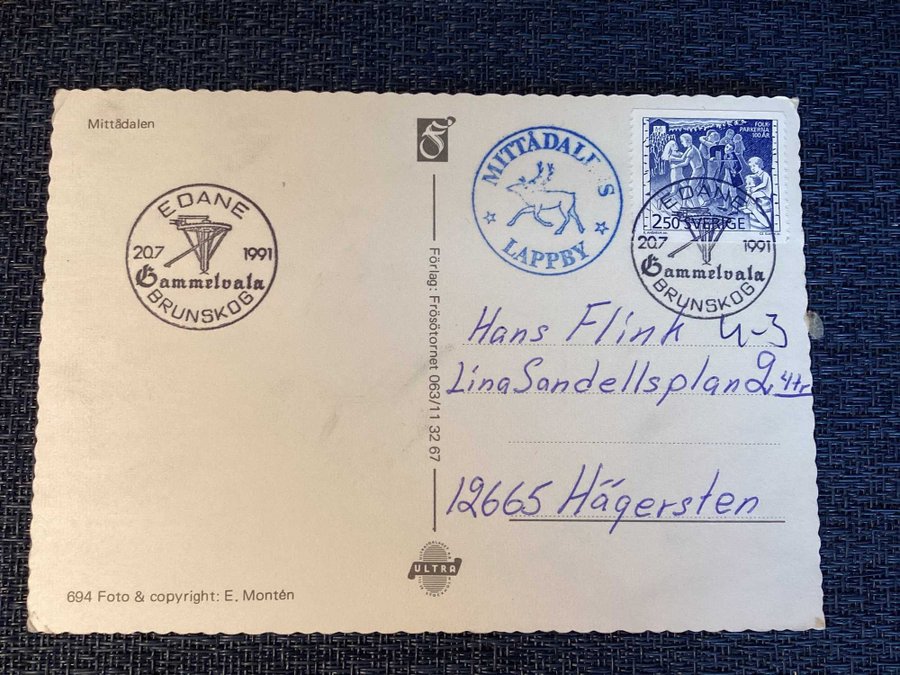 Mittådalen
EDANE
20.7 1991
Gammelvala
BRUNSKOG
694 Foto & copyright: E. Montén
Förlag: Frösötornet 063/11 32 67
ULTRA
MITTÅDAL S
LAPPBY
FOLK-
PARKERNA
100 ÅR
2.50 SVERIGE
EDANE
20.7 1991
Gammelvala
BRUNSKOG
Hans Flink
Lina Sandellsplan 2 4tr
12665 Hägersten